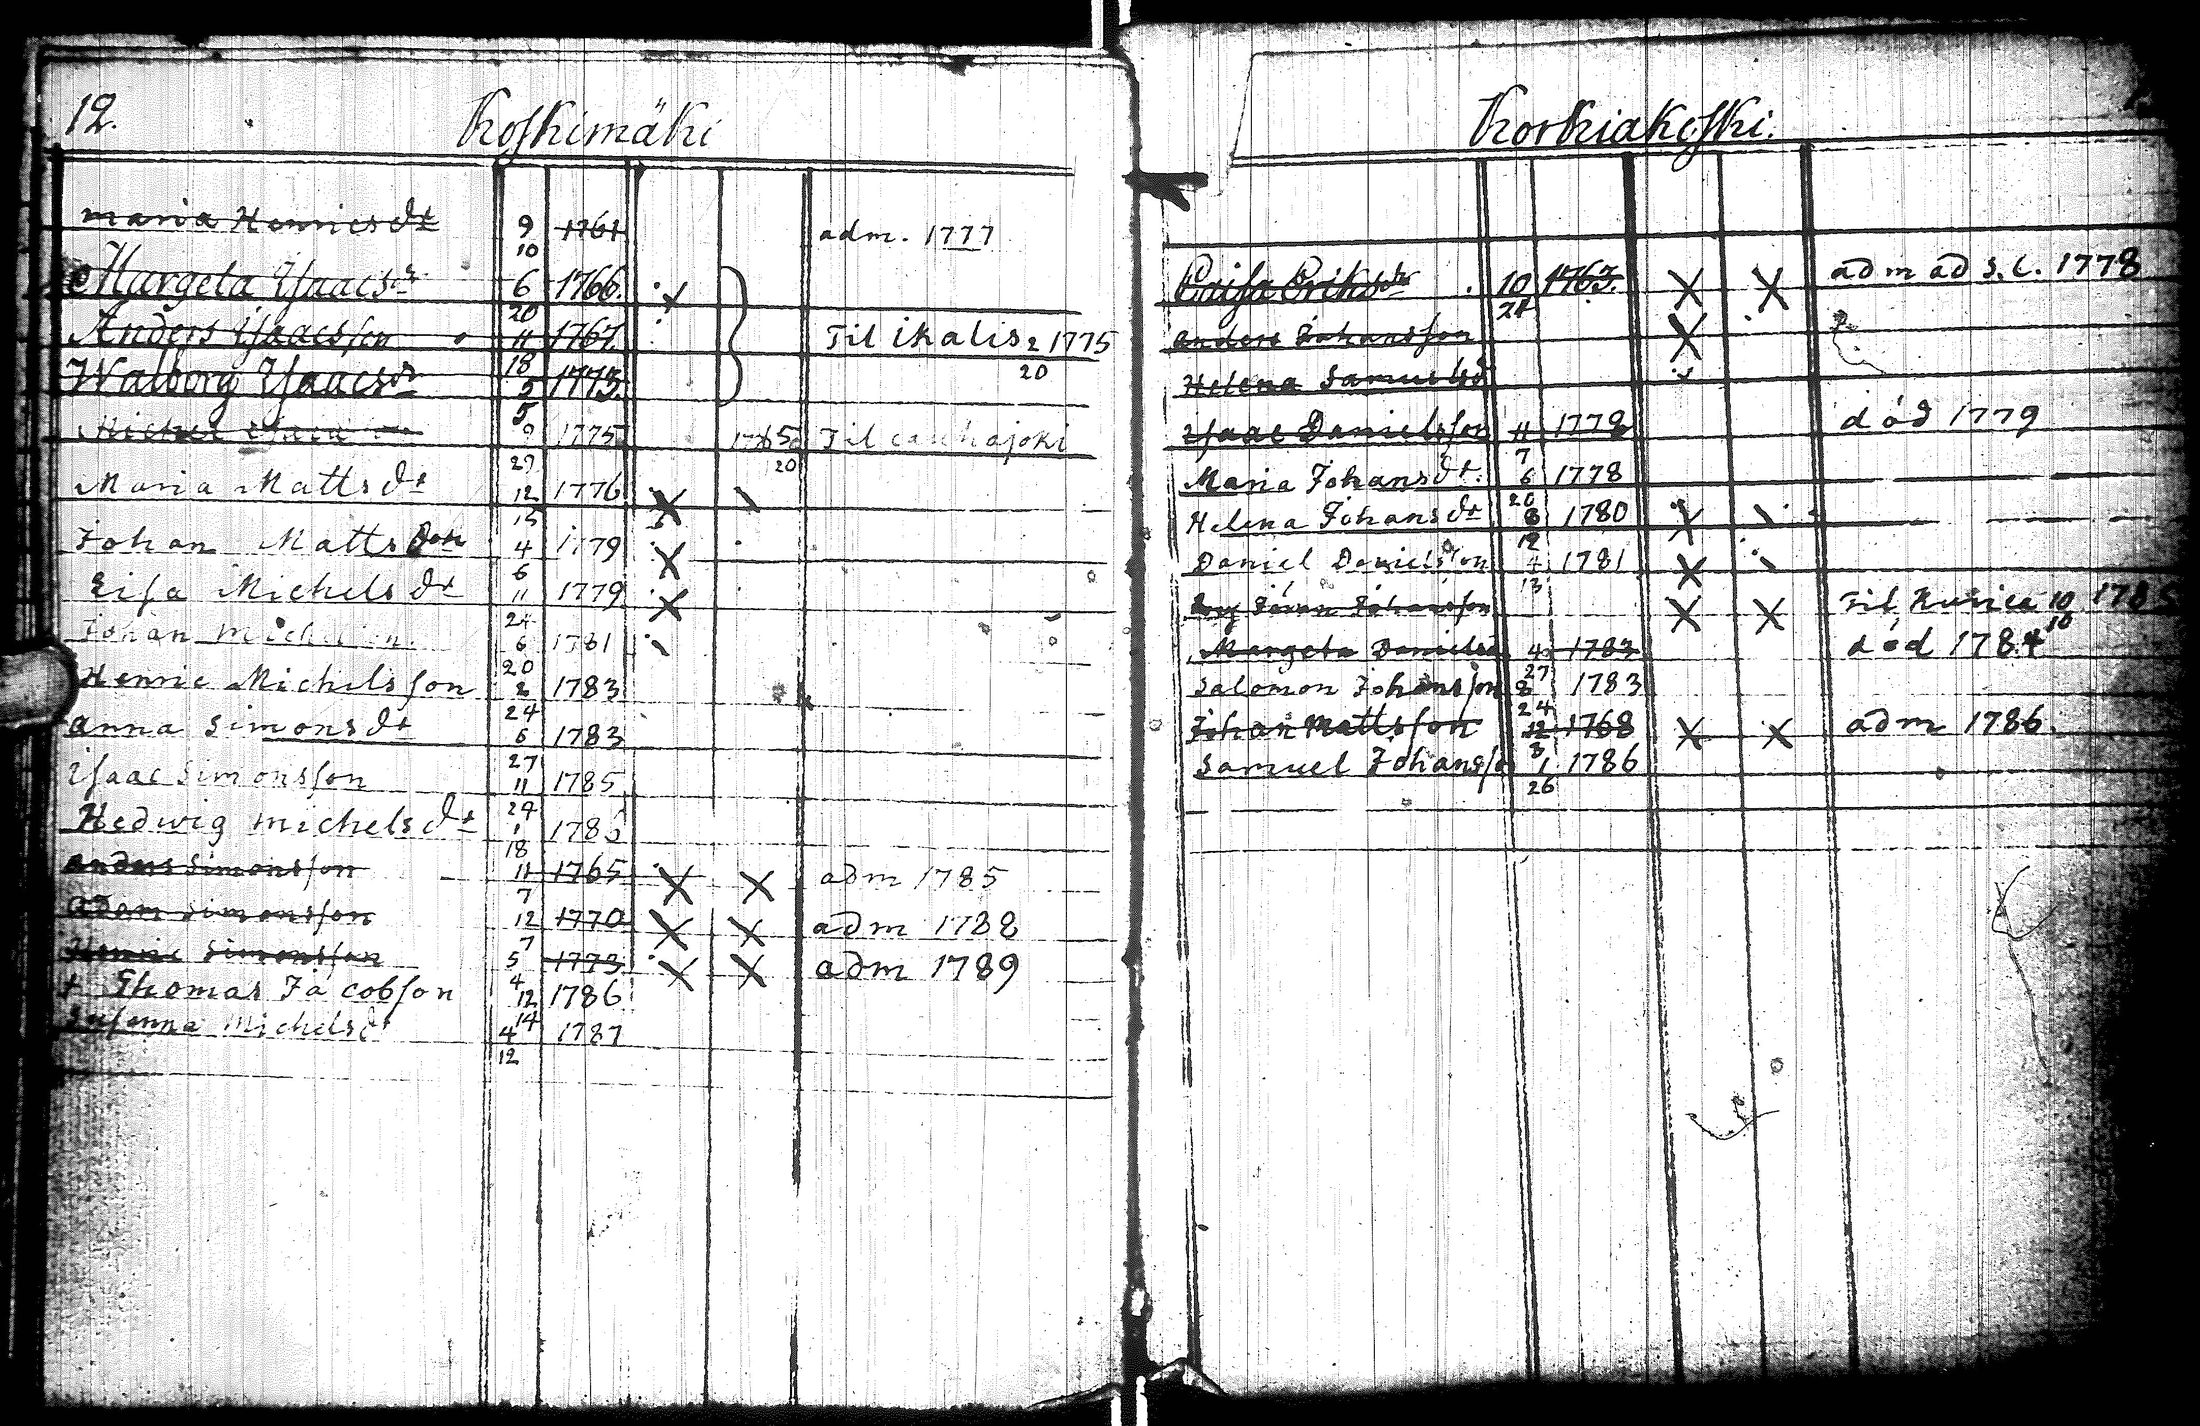 12.
Koskimäki
Maria Henricsdr 9/10 1761 adm. 1777
Margeta Isaacsdr 6/20 1766.
Anders Isaacsson 11/18 1767. Til ikalis 2/20 1775
Walborg Isaacsdr 5/5 1773.
Michel 9/29 1775 1765 20 Til cauhajoki
Maria Mattsdr 12/15 1776
Johan Mattsson 4/6 1779
Lisa Michelsdr 11/24 1779
Johan Michelson. 6/20 1781
Henric Michelsson 2/24 1783
anna Simonsdr 6/27 1783
Isaac Simonsson 11/24 1785
Hedwig Michelsdr 1/18 1786
anders Simonsson 11/7 1765 X X adm 1785
adam Simonsson 12/7 1770 X X adm 1788
Henric Simonsson 5/4 1773 X X adm 1789
+ Thomas Jacobson 12/14 1786
Susanna Michelsdr 4/12 1787
Korkiakoski.
Caisa Eriksdr 10/24 1763. X X adm ad S. C. 1778
anders Johansson X
Helena Samuelsdr
Isaac Danielsson 11/7 1778 död 1779
Maria Johansdr. 6/20 1778
Helena Johansdr 8/12 1780 X
Daniel Danielsson 4/13 1781 X
Johan Johansson X X Til 10/10 178
Margeta Danielsdr 4/27 1783 död 1784
Salomon Johansson 8/24 1783
Johan Mattsson 12/3 1768 X X adm 1786.
Samuel Johansso 1/26 1786